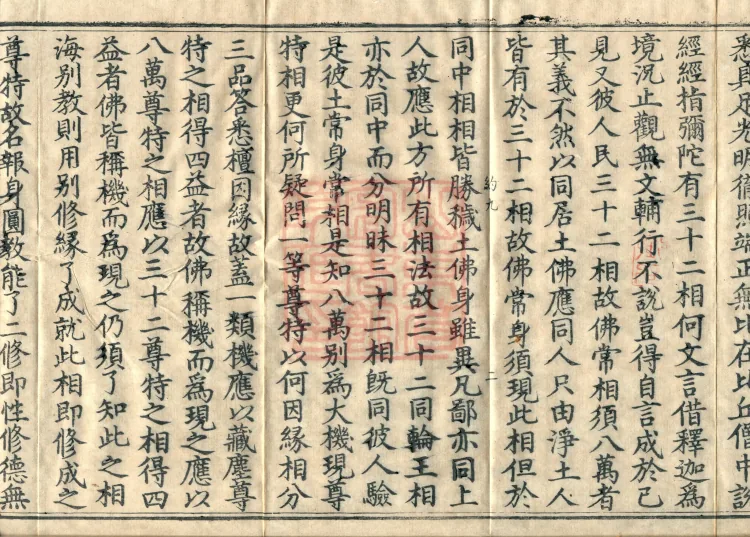 悉具足光明徹照端正無比在比丘僧中說
經經指彌陀有三十二相何文言借釋迦為
境況止觀無文輔行不說豈得自言成於己
見又彼人民三十二相故佛常相須八萬者
其義不然以同居土佛應同人只由淨土人
皆有於三十二相故佛常身須現此相但於
約九
一
同中相相皆勝穢土佛身雖異凡鄙亦同上
人故應此方所有相法故三十二同輪王相
亦於同中而分明昧三十二相既同彼人驗
是彼土常身常相是知八萬別為大機現尊
特相更何所疑問一等尊特以何因緣相分
三品答悉檀因緣故蓋一類機應以藏塵尊
特之相得四益者故佛稱機而為現之應以
八萬尊特之相應以三十二尊特之相得四
益者佛皆稱機而為現之仍須了知此之相
海別教則用別修緣了成就此相即修成之
尊特故名報身圓教能了二修即性修德無